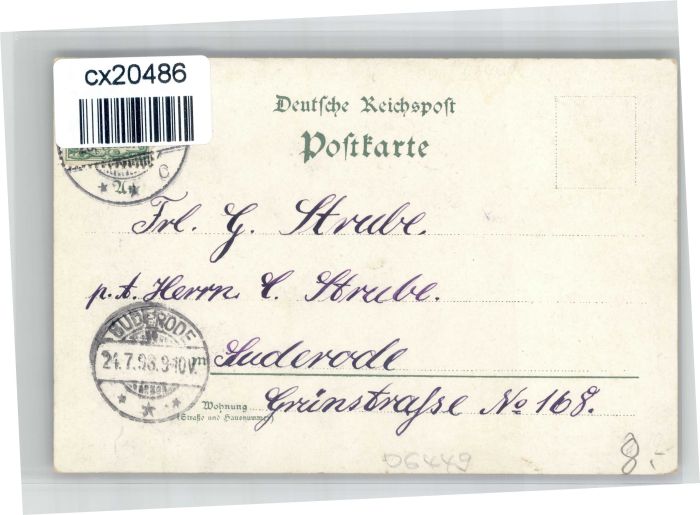 cx20486
Deutsche Reichspost
Postkarte
C
Frl. G. Strube.
p. A. Herrn C. Strube.
SUDERODE
24.7.98.9-10V.
in Suderode
Wohnung Grünstraße No 168.
(Straße und Hausnummer)
D6449
8.-